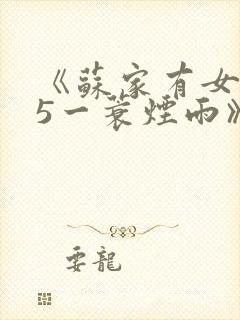 《蘇家有女
5一蓑煙雨》
要龍